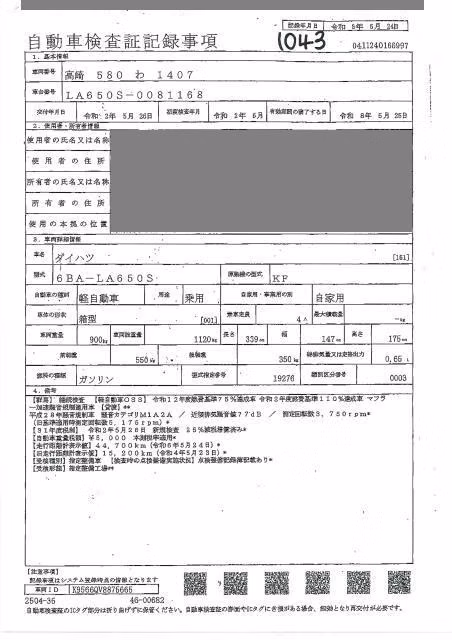 記録年月日 令和 6年 6月 24日
自動車検査証記録事項
1043
0411240166997
1. 基本情報
車両番号 高崎 580 わ 1407
車台番号 LA650S-0081168
交付年月日 令和 2年 5月 26日 初度検査年月 令和 2年 5月 有効期間の満了する日 令和 8年 5月 25日
2. 使用者・所有者情報
使用者の氏名又は名称
使用者の住所
所有者の氏名又は名称
所有者の住所
使用の本拠の位置
3. 車両詳細情報
車名 ダイハツ [161]
型式 6BA-LA650S 原動機の型式 KF
自動車の種別 軽自動車 用途 乗用 自家用・事業用の別 自家用
車体の形状 箱型 [001] 乗車定員 4人 最大積載量 -kg
車両重量 900kg 車両総重量 1120kg 長さ 339cm 幅 147cm 高さ 175cm
前軸重 550kg 後軸重 350kg 総排気量又は定格出力 0.65 L
燃料の種類 ガソリン 型式指定番号 19276 類別区分番号 0003
4. 備考
【群馬】 継続検査 【軽自動車OSS】 令和12年度燃費基準75%達成車 令和2年度燃費基準110%達成車 マフラ
ー加速騒音規制適用車 【貸渡】**
平成28年騒音規制車 騒音カテゴリM1A2A / 近接排気騒音値77dB / 測定回転数3,750rpm*
(旧基準適用時測定回転数5,175rpm)*
【31年度税制】 令和2年5月26日 新規検査 25%減税措置済み*
【自動車重量税額】 ¥5,000 本則税率適用*
【走行距離計表示値】 44,700km(令和6年5月24日)*
【旧走行距離計表示値】 15,200km(令和4年5月23日)*
【受検種別】指定整備車 【検査時の点検整備実施状況】点検整備記録簿記載あり*
【受検形態】指定整備工場**
【注意事項】
記録事項はシステム登録時点の情報となります
車両ID X9566QV8875665
2504-35 46-00682
自動車検査証のICタグ部分は折り曲げずに保管ください。自動車検査証の券面やICタグにき損がある場合、無効となり再交付が必要です。